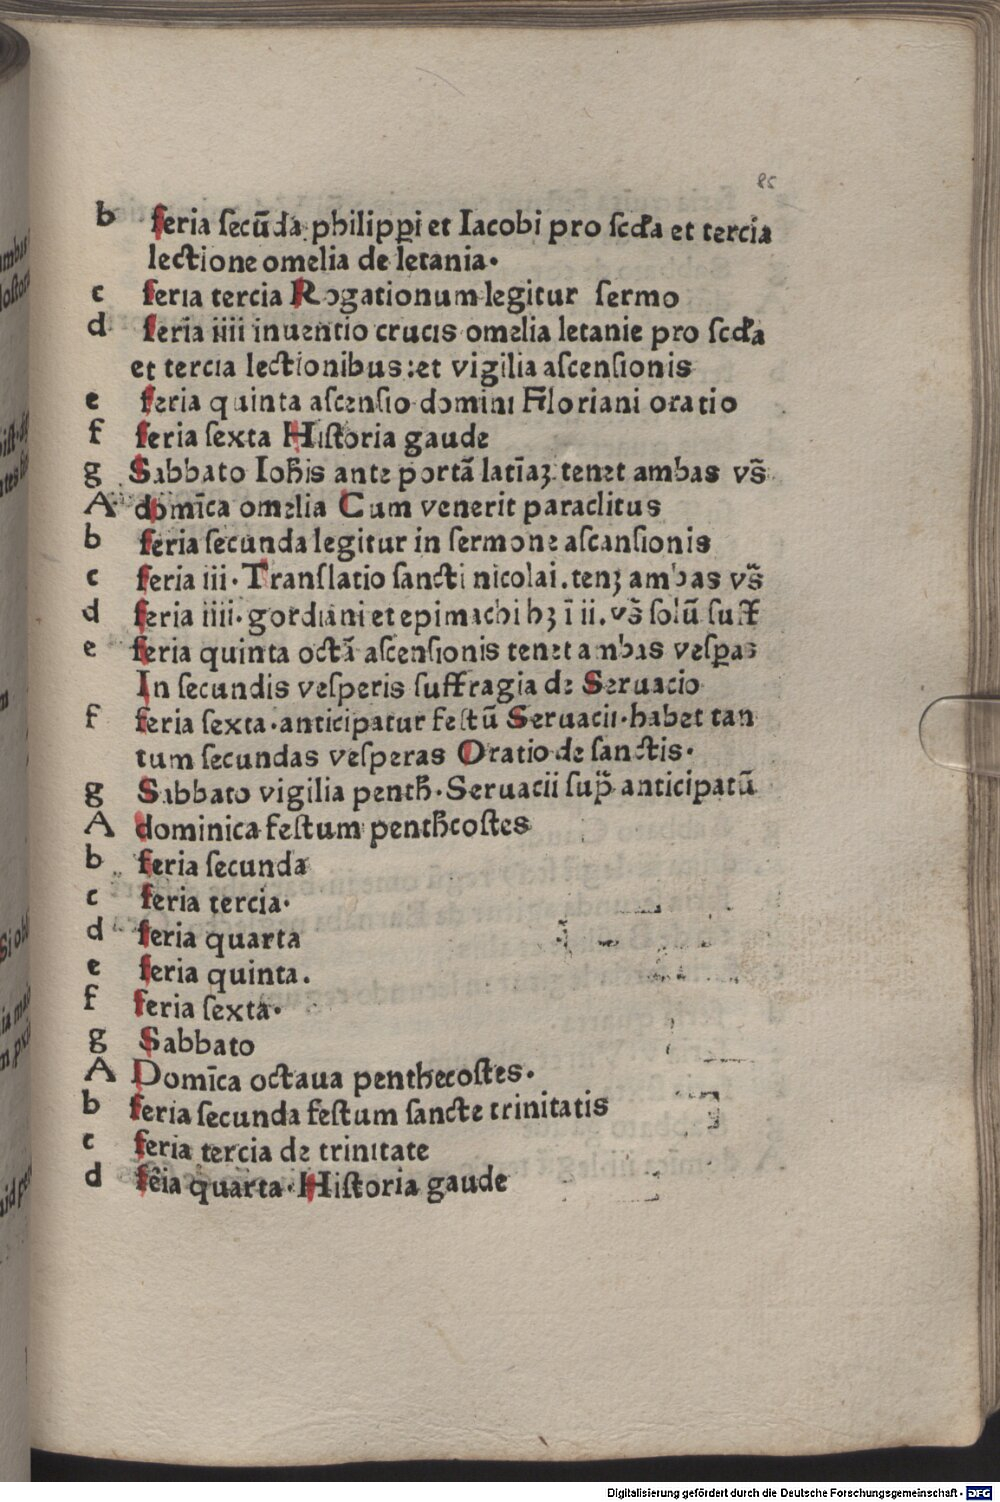 85
b feria secūda philippi et Iacobi pro scďa et tercia
lectione omelia de letania.
c feria tercia Rogationum legitur sermo
d feria iiii inuentio crucis omelia letanie pro scďa
et tercia lectionibus: et vigilia ascensionis
e feria quinta ascensio domini Floriani oratio
f feria sexta Historia gaude
g Sabbato Ioh̄is ante portā latīaꝫ tenet ambas vs̄
A domīca omelia Cum venerit paraclitus
b feria secunda legitur in sermone ascansionis
c feria iii. Translatio sancti nicolai. tenꝫ ambas vs̄
d feria iiii. gordiani et epimachi hꝫ ī ii. vs̄ solū suff
e feria quinta octā ascensionis tenet ambas vesꝑas
In secundis vesperis suffragia de Seruacio
f feria sexta. anticipatur festū Seruacii. habet tan
tum secundas vesperas Oratio de sanctis.
g Sabbato vigilia penth̄. Seruacii sup̄ anticipatū
A dominica festum penth̄costes
b feria secunda
c feria tercia.
d feria quarta
e feria quinta.
f feria sexta.
g Sabbato
A Domīca octaua penthecostes.
b feria secunda festum sancte trinitatis
c feria tercia de trinitate
d fēia quarta. Historia gaude
Digitalisierung gefördert durch die Deutsche Forschungsgemeinschaft - DFG